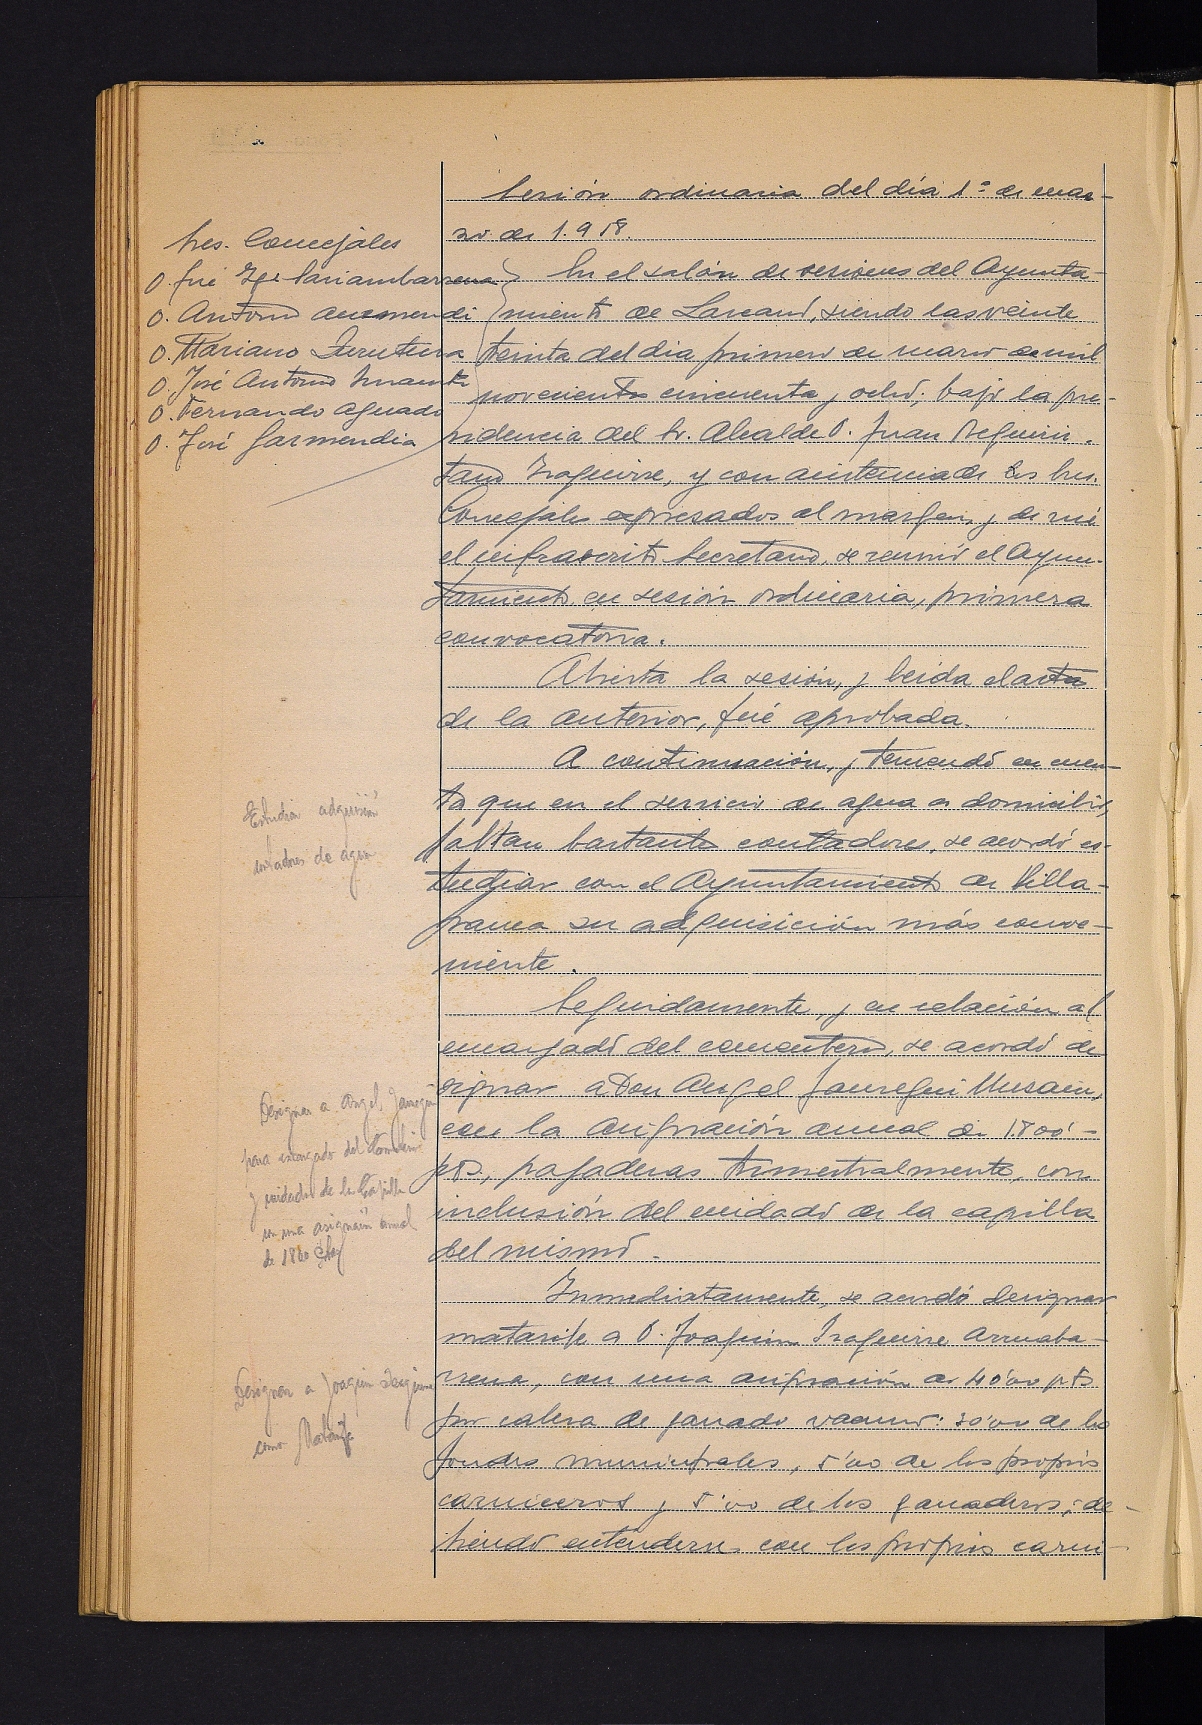 Sesión ordinaria del día 1º de mar-
zo de 1.958.
Sres. Concejales
D. José Igº Sariambarrena
D. Antonio Auzmendi
D. Mariano
D. José Antonio
D. Fernando Aguado
D. José Garmendia
En el salón de sesiones del Ayunta-
miento de Lazcano, siendo las veinte
treinta del día primero de marzo de mil
novecientos cincuenta y ocho, bajo la pre-
sidencia del Sr. Alcalde D. Juan
Izaguirre, y con asistencia de los Sres.
Concejales expresados al margen, y de mí
el infrascrito Secretario, se reunió el Ayun-
tamiento en sesión ordinaria, primera
convocatoria.
Abierta la sesión, y leida el acta
de la anterior, fué aprobada.
A continuación, y teniendo en cuen-
ta que en el servicio de agua a domicilio,
faltan bastante contadores, se acordó es-
tudiar con el Ayuntamiento de Villa-
franca su adquisición más conve-
niente.
Estudiar adquisición
contadores de agua
Seguidamente, y en relación al
encargado del cementerio, se acordó de
signar a Don Angel Jauregui
con la asignación anual de 1.800'-
pts, pagaderas trimestralmente, con
inclusión del cuidado de la capilla
del mismo.
Designar a Angel Jauregui
para encargado del
y cuidado de la Capilla
con una asignación anual
de 1800
Inmediatamente, se acordó designar
matarife a D. Joaquin Izaguirre Arruaba-
rrena, con una asignación de 40'00 pts
por cabeza de ganado vacuno: 30'00 de los
fondos municipales, 5'00 de los propios
carniceros y 5'00 de los ganaderos; de-
biendo entenderse con los propios carni-
Designar a Joaquin Izaguirre
como Matarife